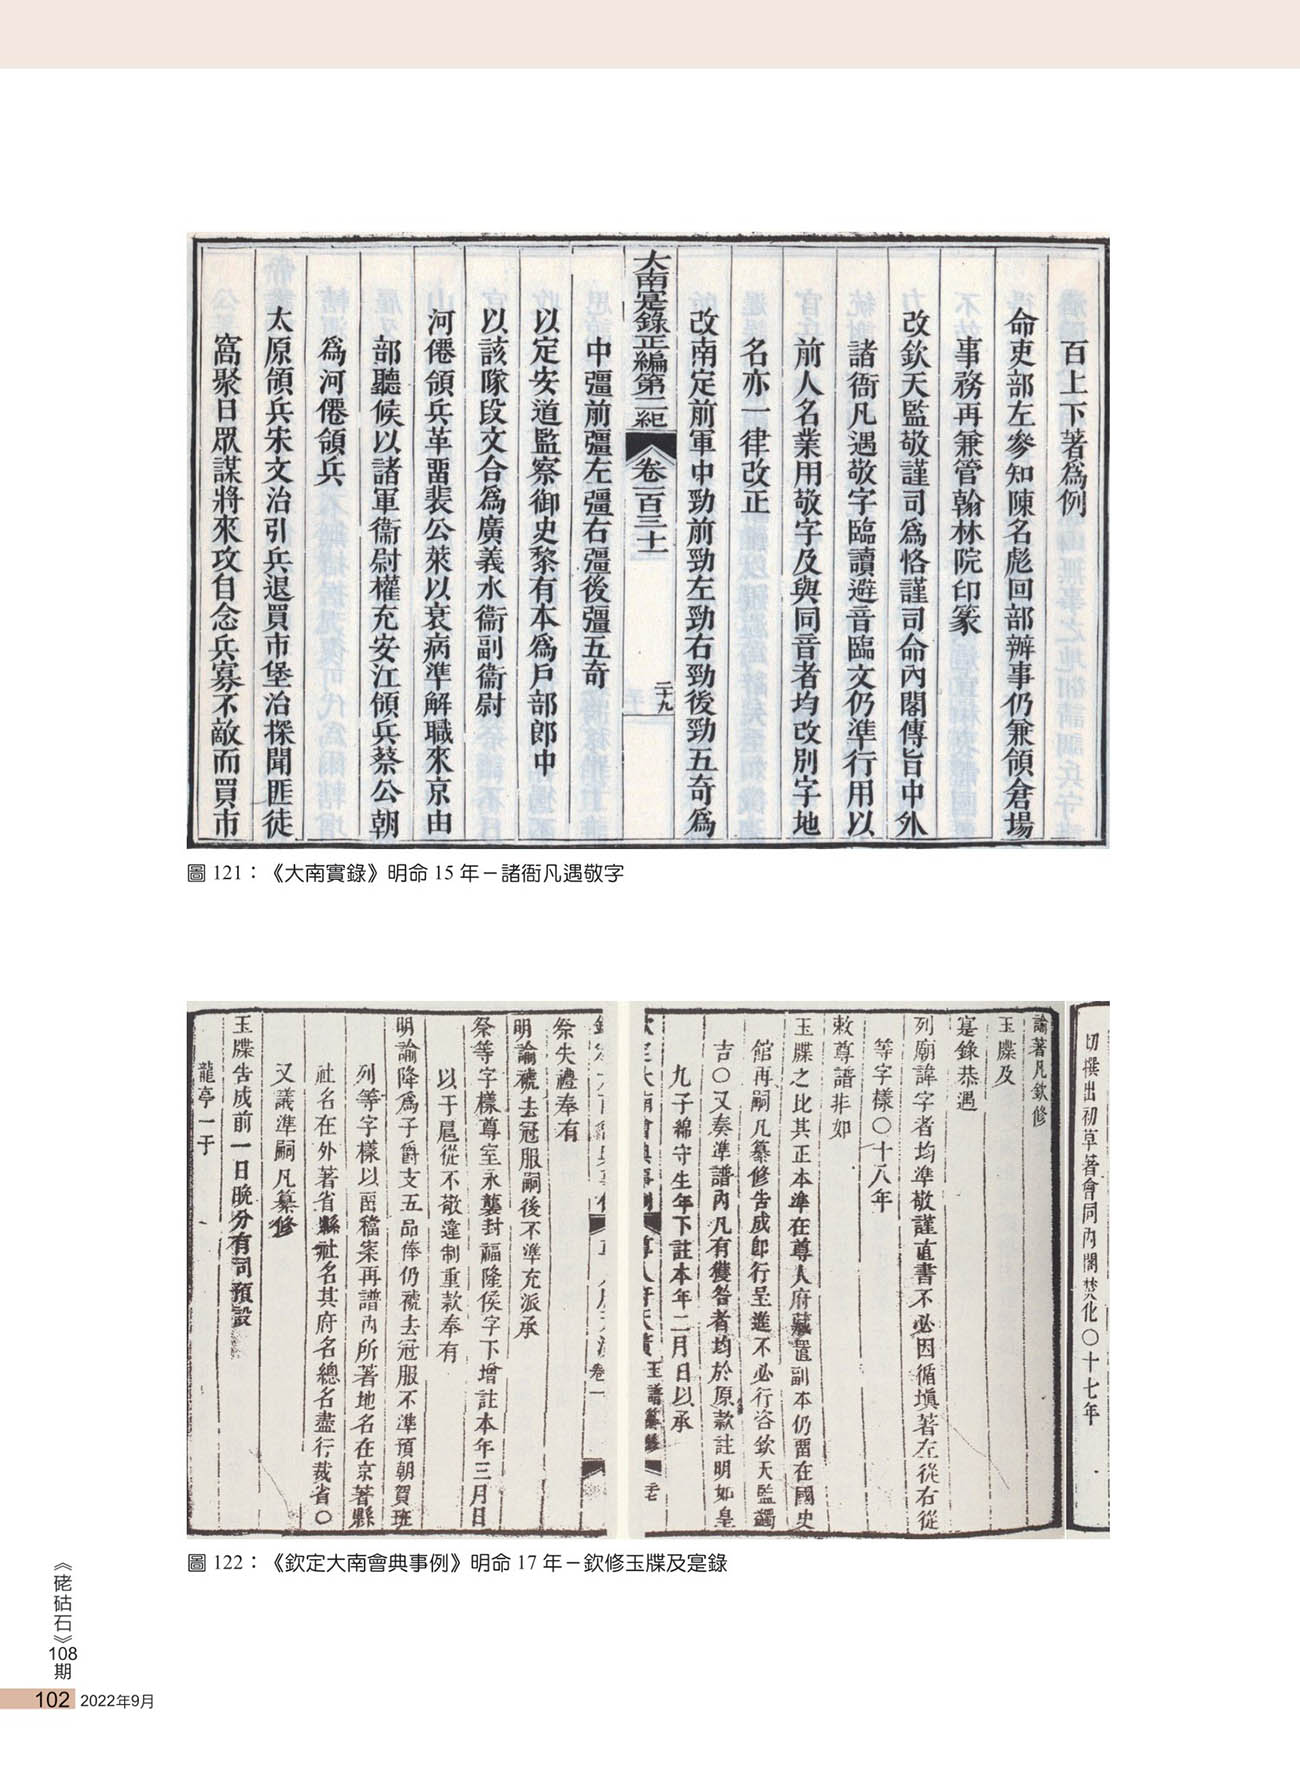 百上下著為例
命吏部左參知陳名彪回部辦事仍兼領倉場
事務再兼管翰林院印篆
改欽天監敬謹司為恪謹司命內閣傳旨中外
諸衙凡遇敬字臨讀避音臨文仍準行用以
前人名業用敬字及與同音者均改別字地
名亦一律改正
改南定前軍中勁前勁左勁右勁後勁五奇爲
大南寔錄正編第二紀 卷一百三十一 二十九
中彊前彊左彊右彊後彊五奇
以定安道監察御史黎有本爲戶部郎中
以該隊段文合爲廣義水衞副衞尉
河僊領兵革畱裴公萊以衰病準解職來京由
部聽候以諸軍衞尉權充安江領兵蔡公朝
爲河僊領兵
太原領兵宋文治引兵退買市堡治探聞匪徒
窩聚日眾謀將來攻自念兵寡不敵而買市
圖 121：《大南實錄》明命 15 年－諸衙凡遇敬字
切撰出初草著會同內閣焚化〇十七年
諭著凡欽修
玉牒及
寔錄恭遇
列廟諱字者均準敬謹直書不必因循填著左從右從
等字樣〇十八年
敕尊譜非如
玉牒之比其正本準在尊人府藏置副本仍畱在國史
館再嗣凡纂修告成即行呈進不必行咨欽天監蠲
吉〇又奏準譜內凡有獲咎者均於原款註明如皇
九子綿守生年下註本年二月日以承
祭失禮奉有
明諭褫去冠服嗣後不準充派承
祭等字樣尊室永襲封福隆侯字下增註本年三月日
以于扈從不敬違制重款奉有
明諭降爲子爵支五品俸仍褫去冠服不準預朝賀班
列等字樣以畱檔案再譜內所著地名在京著縣
社名在外著省縣社名其府名總名盡行裁省〇
又議準嗣凡纂修
玉牒告成前一日晚分有司預設
龍亭一于
圖 122：《欽定大南會典事例》明命 17 年－欽修玉牒及寔錄
《硓𥑮石》108期
102 2022年9月